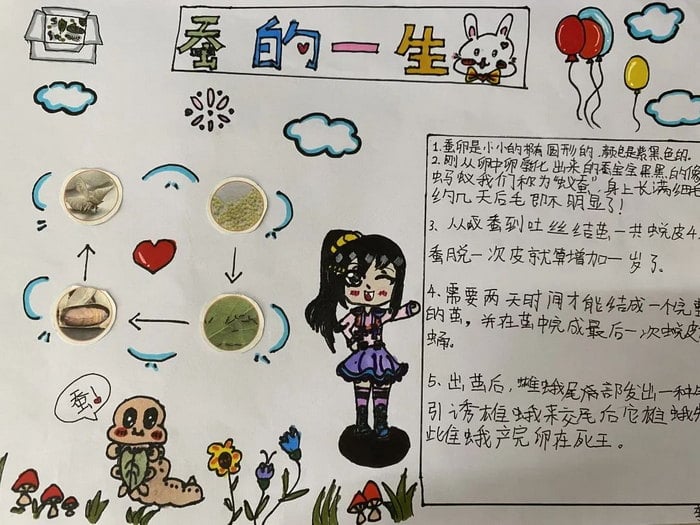 蚕的一生
1. 蚕卵是小小的椭圆形的.颜色是紫黑色的.
2. 刚从卵中孵化出来的蚕宝宝黑黑的像
蚂蚁我们称为“蚁蚕”,身上长满细毛
约几天后毛即不明显了!
3、从蚁蚕到吐丝结茧一共蜕皮4
蚕脱一次皮就算增加一岁了。
4. 需要两天时间才能结成一个完
的茧,并在茧中完成最后一次蜕皮
蛹。
5、出茧后,雌蛾尾部发出一种
引诱雄蛾来交尾后它雄蛾
此雌蛾产完卵在死
蚕!